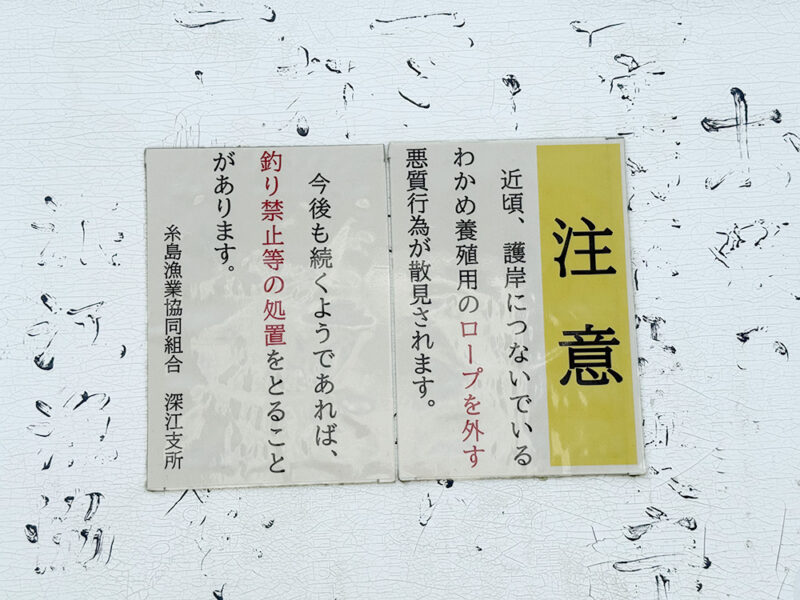 注意
近頃、護岸につないでいる
わかめ養殖用のロープを外す
悪質行為が散見されます。
今後も続くようであれば、
釣り禁止等の処置をとること
があります。
糸島漁業協同組合 深江支所